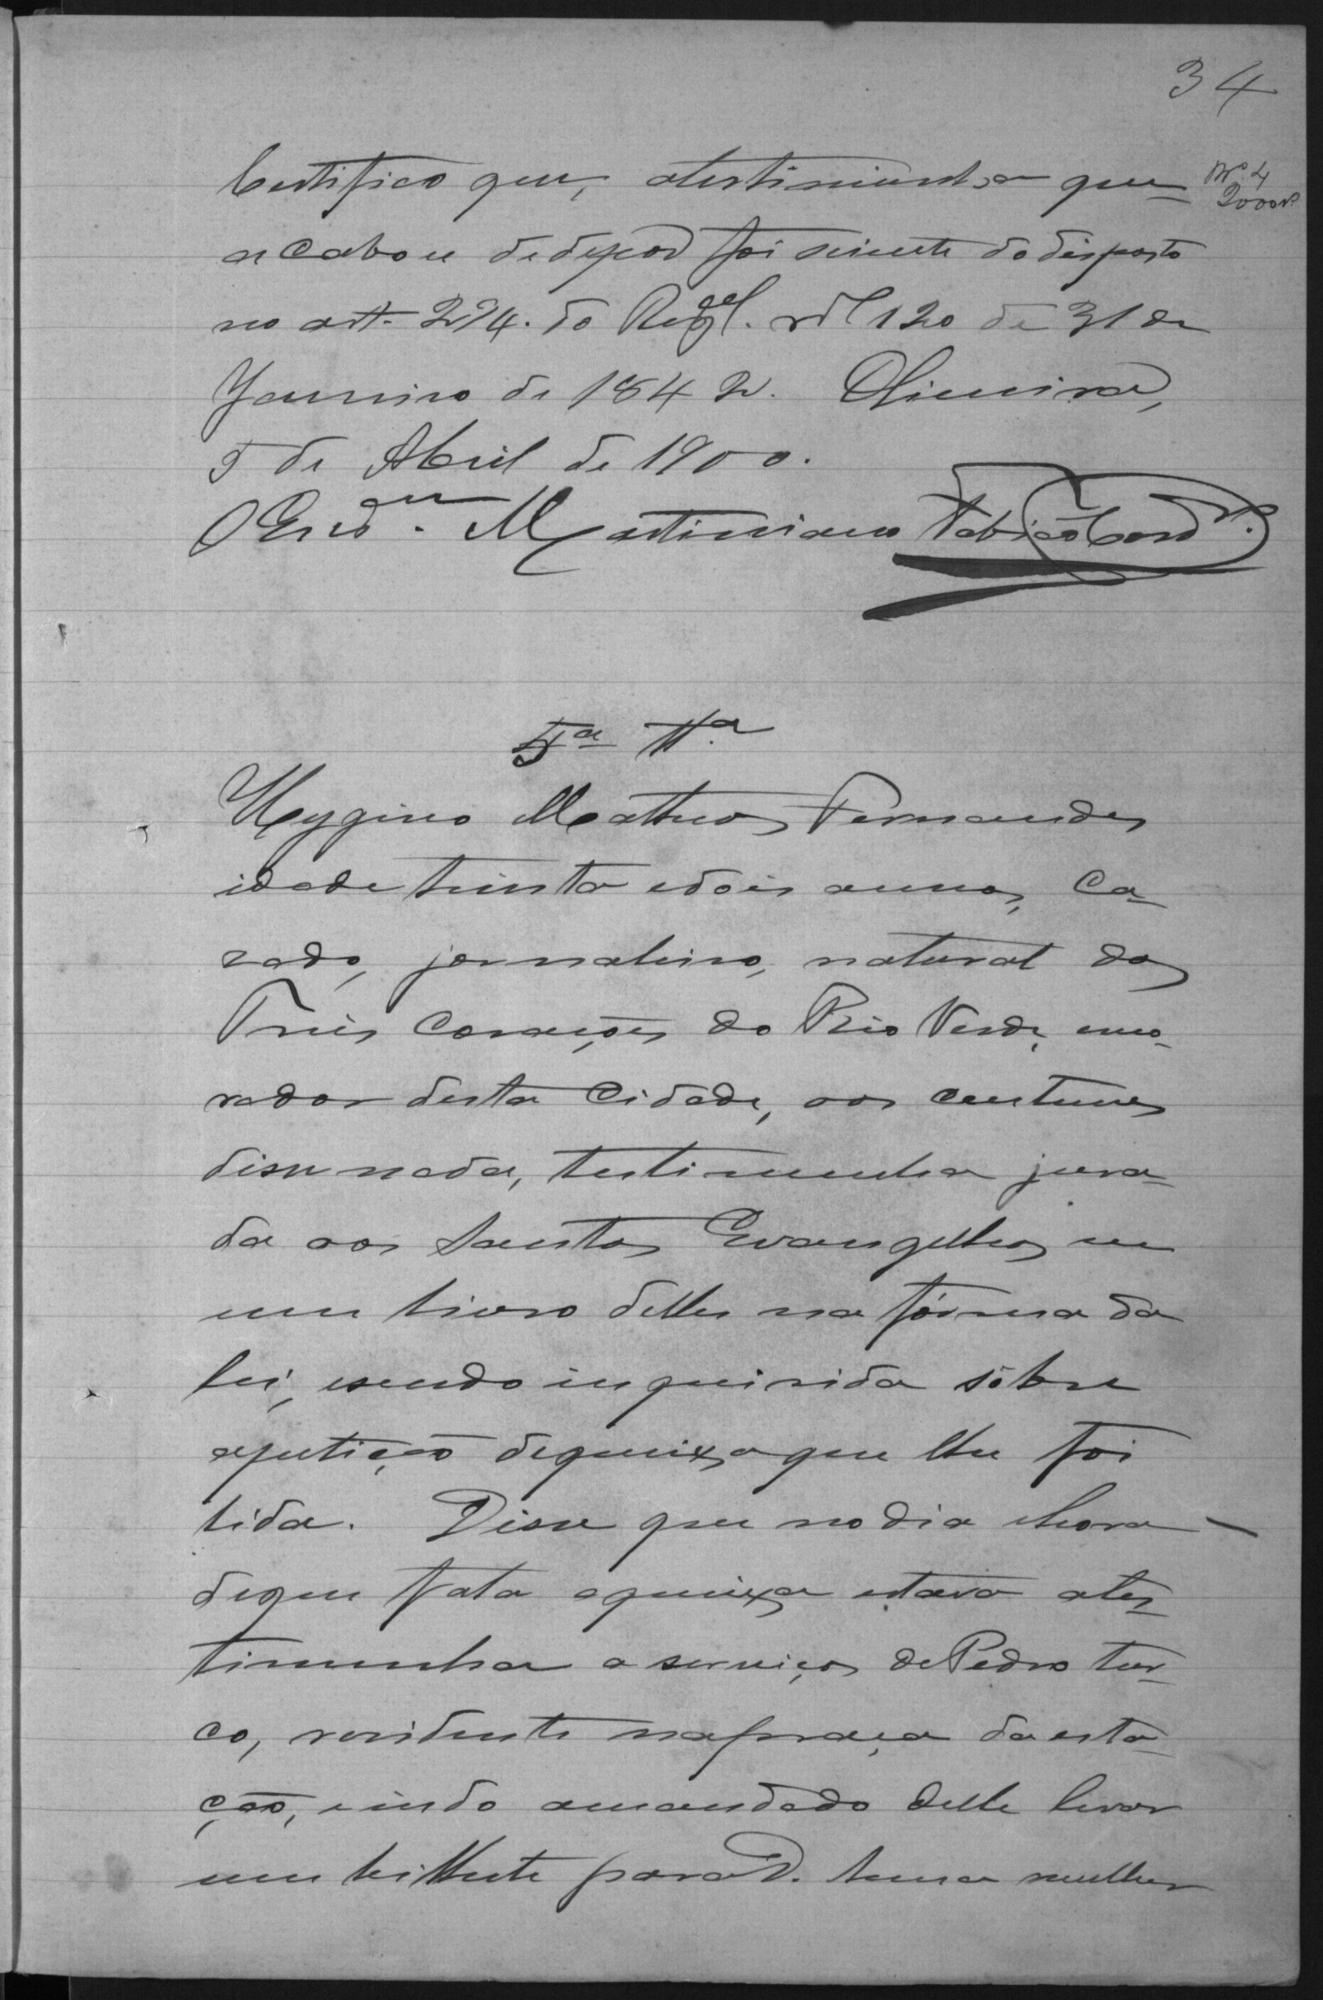 34
Certifico que, atestimunha que
Nº 4
2000rs
acabou dedepôr foi sciente do disposto
no art. 294. do Regl. nº 120 de 31 de
Janeiro de 1842. Oliveira,
5 de Abril de 1900.
O Escrm. Martiniano
5ª Ttª
Hygino Matheos Fernandes
idade trinta edois annos, Ca-
zado, jornaleiro, natural das
Tres Corações do Rio Verde, mo-
rador desta Cidade, aos custumes
disse nada, testimunha jura-
da aos Santos Evangelhos em
um livro delles na fórma da
lei, esendo inquirida sôbre
apetição dequeixa que lhe foi
lida. Disse que nodia ehora
deque trata aqueixa estava ates-
timunha a serviços de Pedro tur-
co, residente napraça da esta-
ção, eindo amandado delle levar
um bilhete para D. Anna mulher